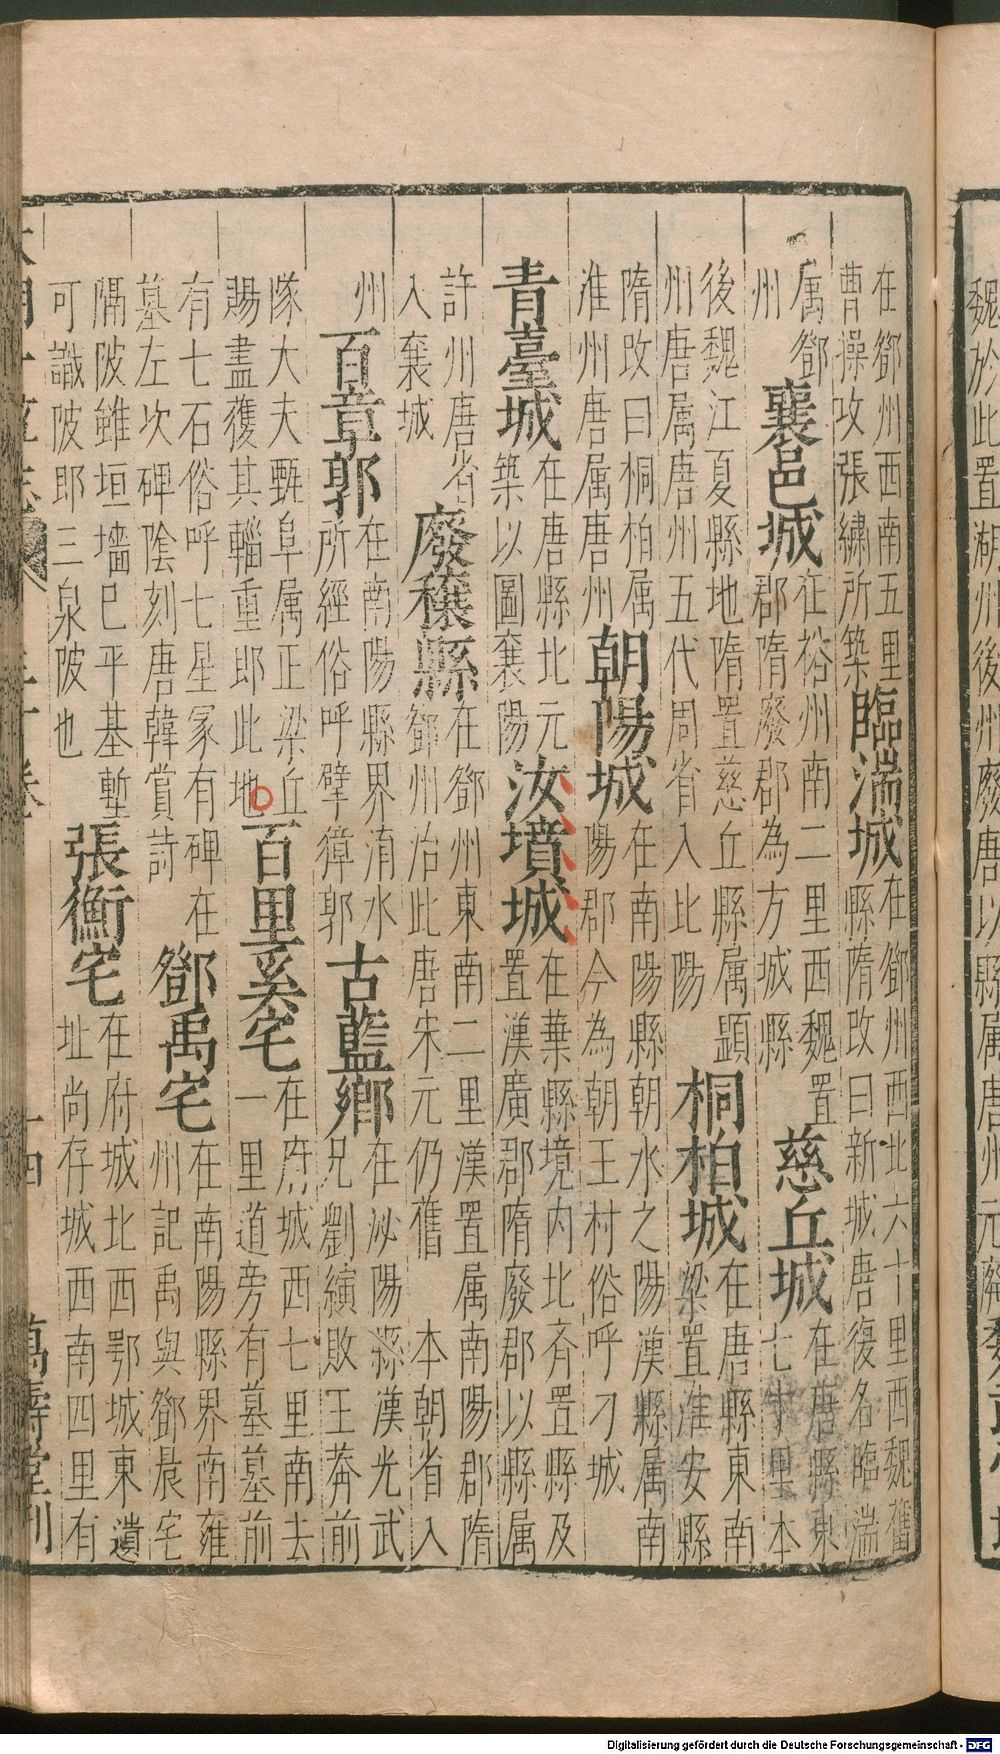 在鄧州西南五里
曹操攻張繡所築
臨湍城
在鄧州西北六十里西魏舊
縣隋改曰新城唐復名臨湍
屬鄧
州
襄邑城
在裕州南二里西魏置
郡隋廢郡為方城縣
慈丘城
在唐縣東
七十里本
後魏江夏縣地隋置慈丘縣属顕
州唐属唐州五代周省入比陽
桐柏城
在唐縣東南
梁置淮安縣
隋改曰桐柏属
淮州唐属唐州
朝陽城
在南陽縣朝水之陽漢縣属南
陽郡今為朝王村俗呼刁城
青臺城
在唐縣北元
築以圖襄陽
汝墳城
在葉縣境内北斉置縣及
置漢廣郡隋廢郡以縣属
許州唐省
入襄城
廢穰縣
在鄧州東南二里漢置属南陽郡隋
鄧州治此唐宋元仍舊 本朝省入
州
百章郭
在南陽縣界淯水
所經俗呼擘獐郭
古藍鄉
在泌陽縣漢光武
兄劉縯敗王莽前
隊大夫甄阜属正梁丘
賜盡獲其輜重郎此地
百里奚宅
在府城西七里南去
一里道旁有墓墓前
有七石俗呼七星冢有碑在
墓左次碑陰刻唐韓賞詩
鄧禹宅
在南陽縣界南雍
州記禹與鄧晨宅
隔陂雖垣墻已平基塹
可識陂郎三泉陂也
張衡宅
在府城北西鄂城東遺
址尚存城西南四里有
萬壽堂刊
魏於此置湖州後州廢唐以縣属唐州元廢
Digitalisierung gefördert durch die Deutsche Forschungsgemeinschaft - DFG